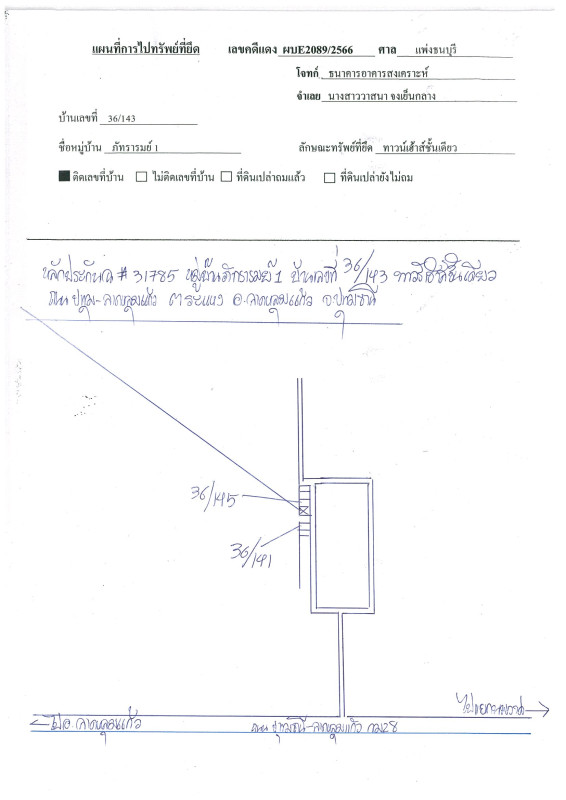 แผนที่การไปทรัพย์ที่ยึด เลขคดีแดง ผบE2089/2566 ศาล แพ่งธนบุรี
โจทก์ ธนาคารอาคารสงเคราะห์
จำเลย นางสาววาสนา จงเย็นกลาง
บ้านเลขที่ 36/143
ชื่อหมู่บ้าน ภัทรารมย์ 1 ลักษณะทรัพย์ที่ยึด ทาวน์เฮ้าส์ชั้นเดียว
ติดเลขที่บ้าน ไม่ติดเลขที่บ้าน ที่ดินเปล่าถมแล้ว ที่ดินเปล่ายังไม่ถม
หลักประกัน # 31785 หมู่บ้านภัทรารมย์ 1 บ้านเลขที่ 36/143 ชั้นเดียว
ถนน ปทุม-ลาดหลุมแก้ว ต.ระแหง อ.ลาดหลุมแก้ว จ.ปทุมธานี
36/145
36/141
ไปอ.ลาดหลุมแก้ว
ถนน ปทุมธานี-ลาดหลุมแก้ว กม28